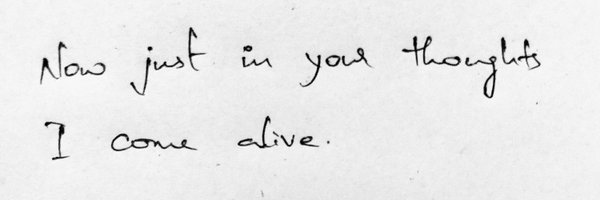 Now just in your thoughts
I come alive.